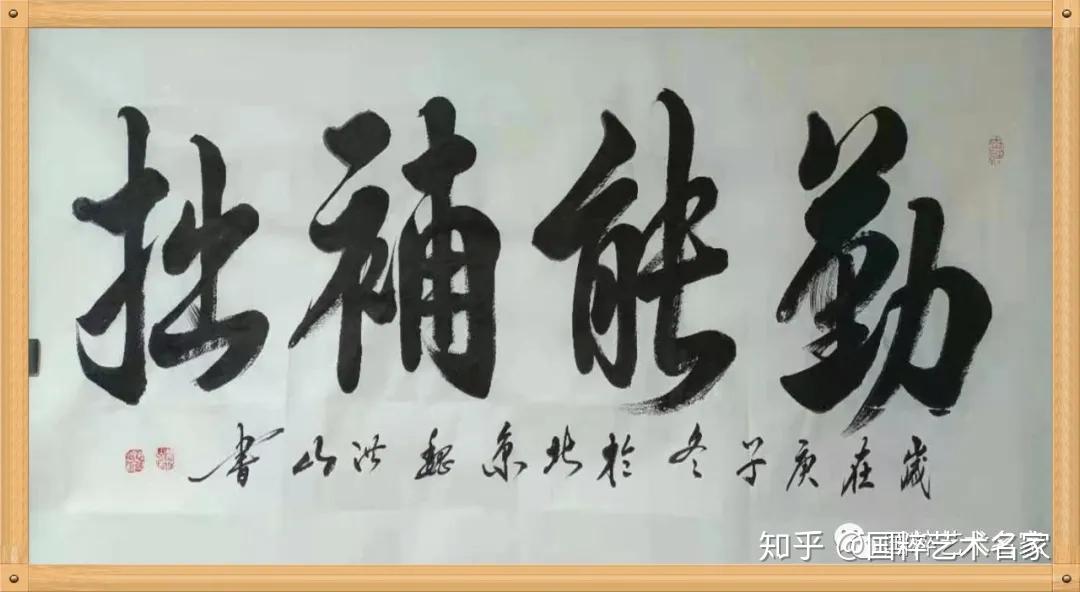 勤能補拙
歲在庚子冬於北京魏洪山書
知乎 @国粹艺术名家